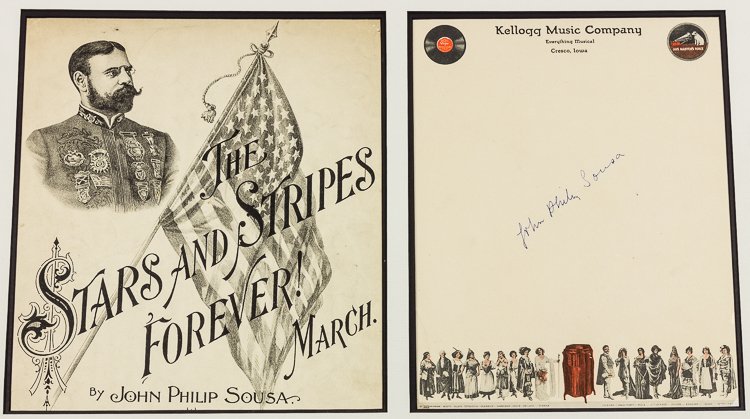 THE
STARS AND STRIPES
FOREVER!
MARCH.
BY JOHN PHILIP SOUSA
Kellogg Music Company
Everything Musical
Cresco, Iowa
HIS MASTER'S VOICE
John Philip Sousa